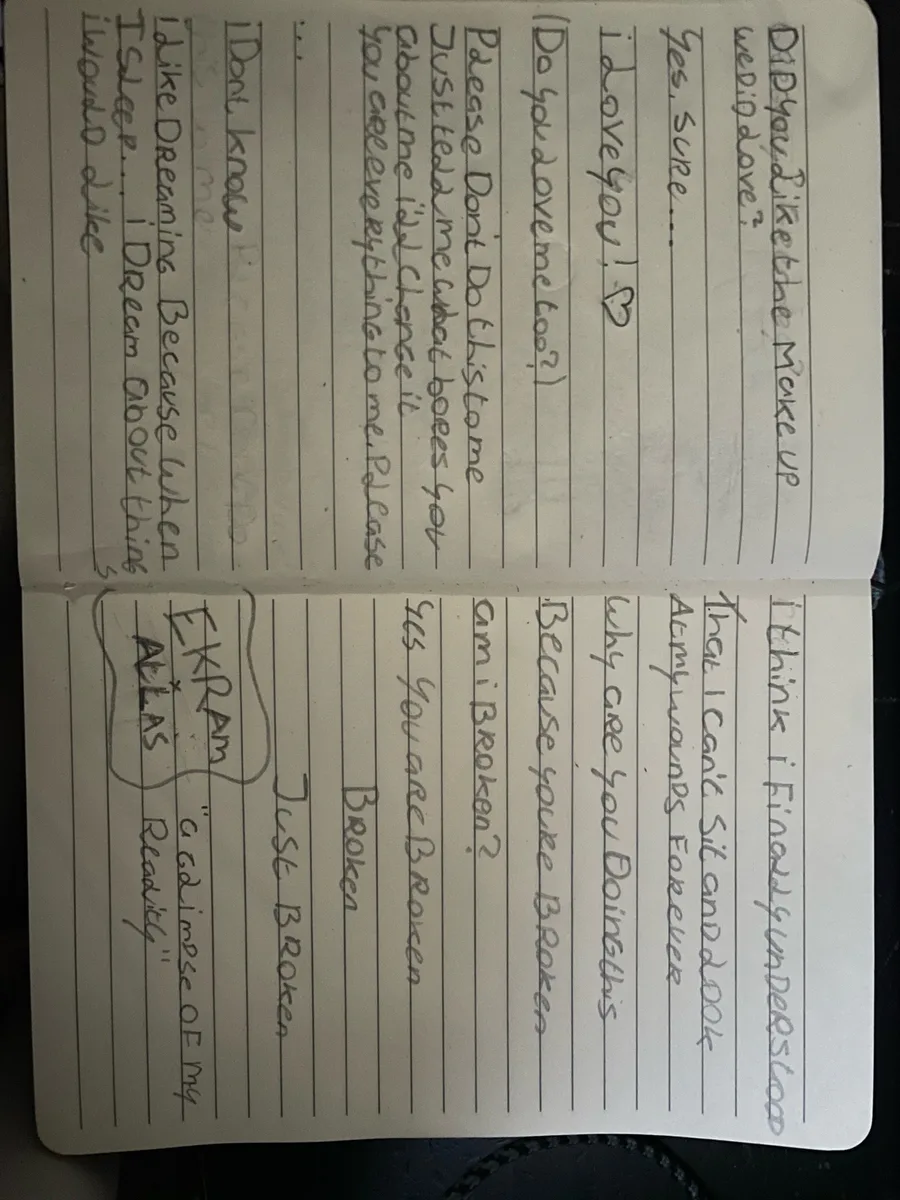 DID you Like the Make up
we DiD Love?
Yes, sure...
i Love you! ♡
(Do you Love me too?)
Please Don't Do this to me
Just tell me what bores you
about me i'll change it
you are everything to me. Please
...
i Dont know
i Like DReaming Because when
I sleep... i DReam about thing
s
i WoulD Like
i think i Finally unDeRstooD
That I can't sit anD LOOK
At my wounDs FoReveR
Why are you Doing this
Because youRe BRoken
am i BRoken?
Yes you aRe BRoken
BRoken
Just BRoken
EKRAM
AttAS
"a Glimpse OF my
Reality"